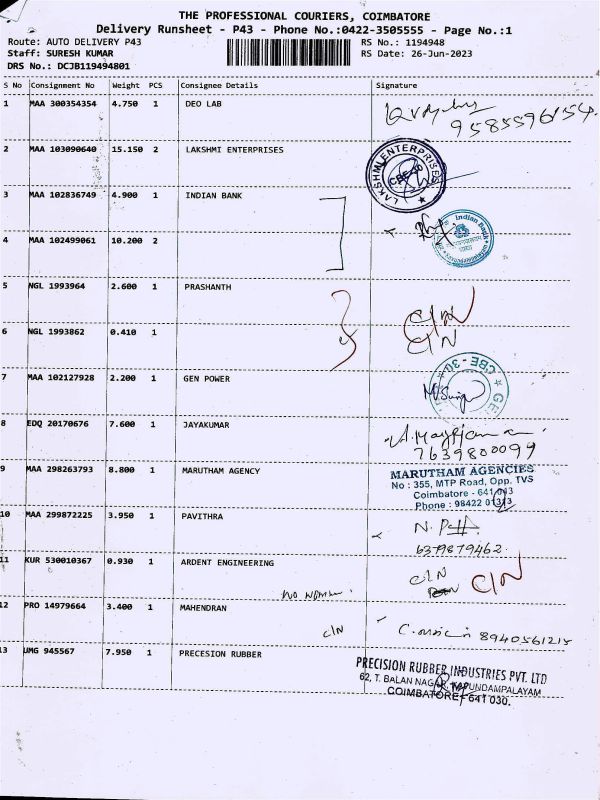 THE PROFESSIONAL COURIERS, COIMBATORE
Delivery Runsheet - P43 - Phone No.:0422-3505555 - Page No.:1
Route: AUTO DELIVERY P43 RS No.: 1194948
Staff: SURESH KUMAR RS Date: 26-Jun-2023
DRS No.: DCJB119494801
S No Consignment No Weight PCS Consignee Details Signature
1 MAA 300354354 4.750 1 DEO LAB
9585596154.
2 MAA 103090640 15.150 2 LAKSHMI ENTERPRISES
LAKSHMI ENTERPRISES
3 MAA 102836749 4.900 1 INDIAN BANK
Indian Bank
4 MAA 102499061 10.200 2
5 NGL 1993964 2.600 1 PRASHANTH
C/N
6 NGL 1993862 0.410 1
C/N
7 MAA 102127928 2.200 1 GEN POWER
CBE - 30
8 EDQ 20170676 7.600 1 JAYAKUMAR
7639800099
9 MAA 298263793 8.800 1 MARUTHAM AGENCY
MARUTHAM AGENCIES
No : 355, MTP Road, Opp. TVS
Coimbatore - 641 043
Phone : 98422 01313
10 MAA 299872225 3.950 1 PAVITHRA
6379879462.
11 KUR 530010367 0.930 1 ARDENT ENGINEERING
C/N C/N
12 PRO 14979664 3.400 1 MAHENDRAN
C/N 8940561215
13 UMG 945567 7.950 1 PRECESION RUBBER
PRECISION RUBBER INDUSTRIES PVT. LTD
62, T. BALAN NAGAR,
COIMBATORE - 641 030.